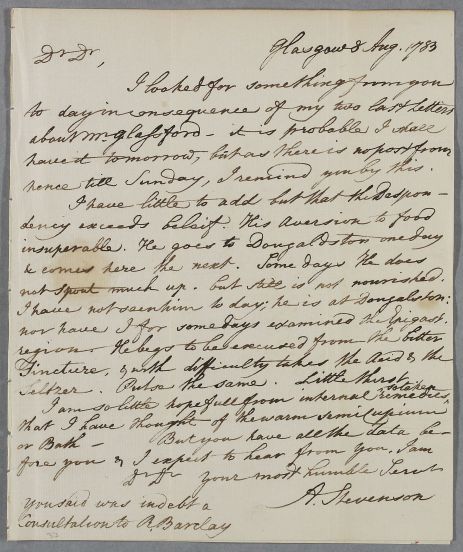 Glasgow 8 Aug. 1783
Dr Dr,
I looked for something from you
to day in consequence of my two last Letters
about Mr Glassford - it is probable I shall
have it tomorrow, but as there is no post from
hence till Sunday, I remind you by this.
I have little to add but that the Despon-
dency exceeds beleif His Aversion to food
insuperable. He goes to Dougaldston one day
& comes here the next. Some days He does
not spout much up. but still is not nourished.
I have not seen him to day; he is at Dougalston:
nor have I for some days examined the Epigast.
region. He begs to be excused from the bitter
Tincture, & with difficulty takes the Acid & the
Seltzer. Pulse the same. Little thirst
I am so little hopefull from internal remedies, to be taken
that I have thought of the warm Semicupium
or Bath - But you have all the data be-
fore you & I expect to hear from you. I am
Dr Dr your most humble Servt
A. Stevenson
you said was in debt a
Consultation to R. Barclay